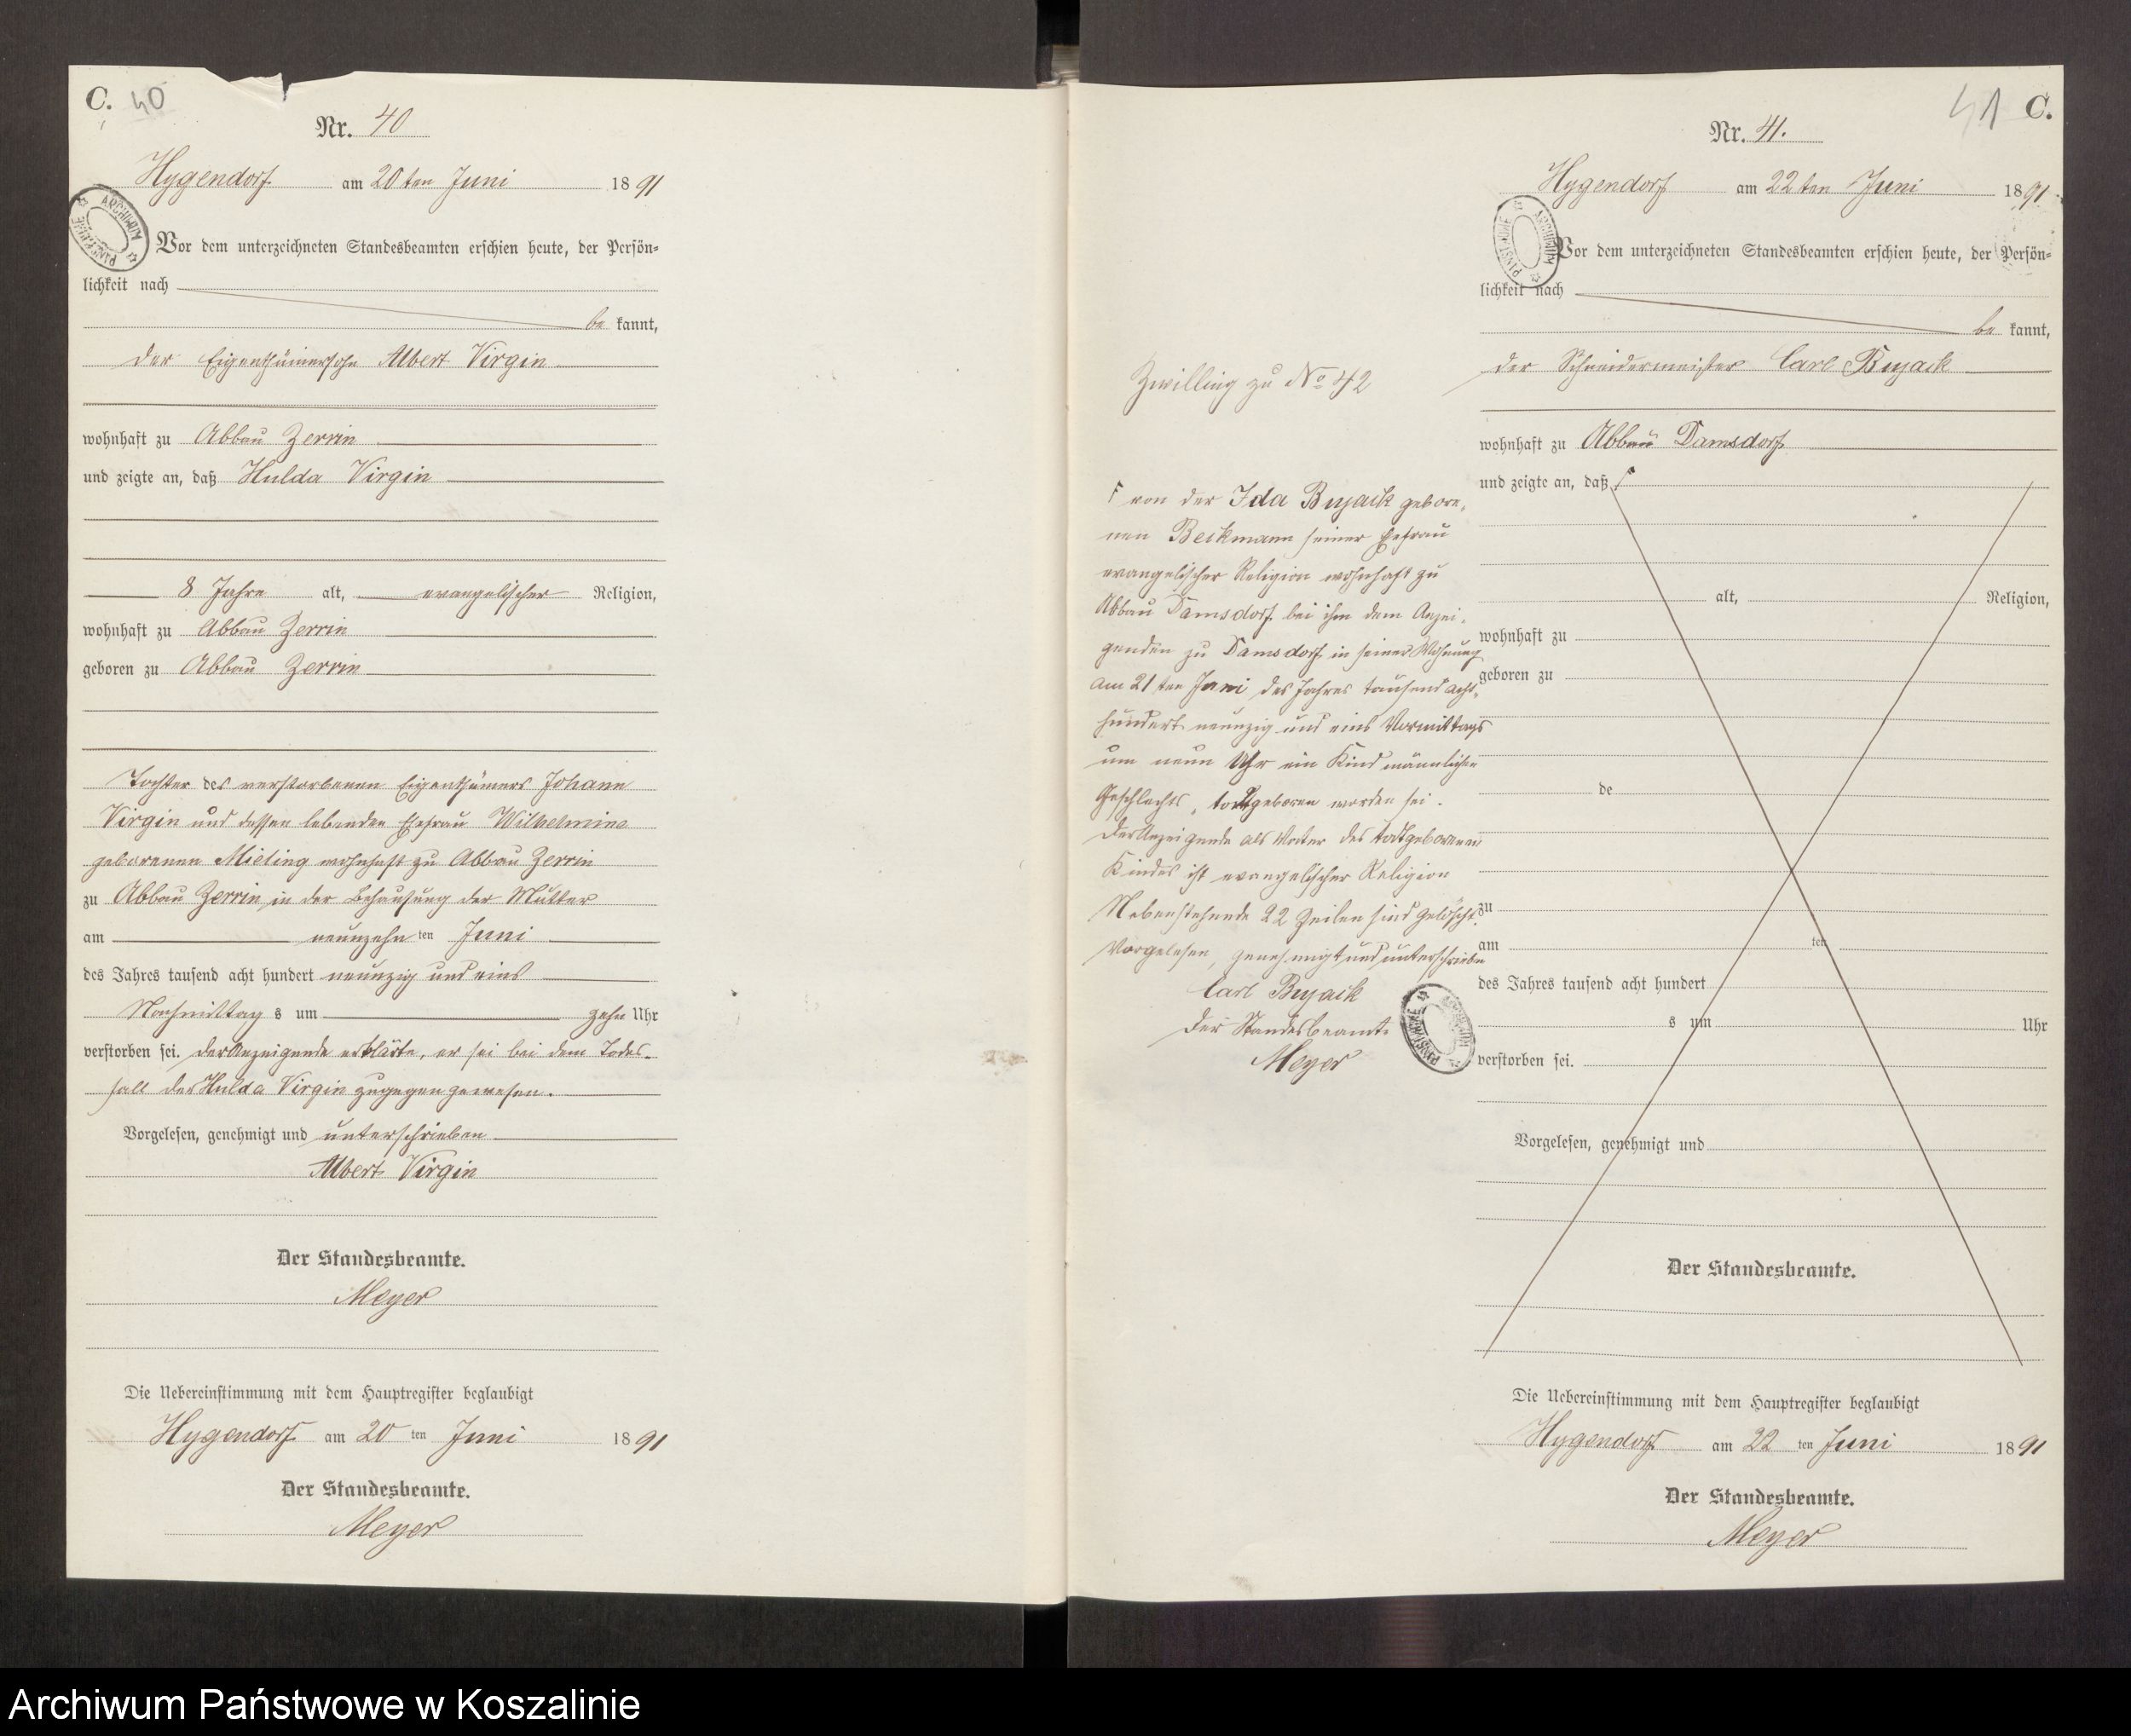 C. 40
Nr. 40
Hygendorf am 20ten Juni 1891
Vor dem unterzeichneten Standesbeamten erschien heute, der Persön-
lichkeit nach
be kannt,
der Eigenthümersohn Albert Virgin
wohnhaft zu Abbau Zerrin
und zeigte an, daß Hulda Virgin
8 Jahre alt, evangelischer Religion,
wohnhaft zu Abbau Zerrin
geboren zu Abbau Zerrin
Tochter des verstorbenen Eigenthümers Johann
Virgin und dessen lebenden Ehefrau Wilhelmine
geborenen Mieling wohnhaft zu Abbau Zerrin
zu Abbau Zerrin in der Behausung der Mutter
am neunzehn ten Juni
des Jahres tausend acht hundert neunzig und eins
Nachmittag s um zehn Uhr
verstorben sei. der Anzeigende erklärte, er sei bei dem Todes-
fall der Hulda Virgin zugegen gewesen.
Vorgelesen, genehmigt und unterschrieben
Albert Virgin
Der Standesbeamte.
Meyer
Die Uebereinstimmung mit dem Hauptregister beglaubigt
Hygendorf am 20 ten Juni 1891
Der Standesbeamte.
Meyer
ARCHIWUM PAŃSTWOWE
41 C.
Nr. 41.
Hygendorf am 22ten Juni 1891
Vor dem unterzeichneten Standesbeamten erschien heute, der Persön-
lichkeit nach
be kannt,
der Schneidermeister Carl Bujack
wohnhaft zu Abbau Damsdorf
und zeigte an, daß
alt, Religion,
wohnhaft zu
geboren zu
de
zu
am ten
des Jahres tausend acht hundert
s um Uhr
verstorben sei.
Vorgelesen, genehmigt und
Der Standesbeamte.
Die Uebereinstimmung mit dem Hauptregister beglaubigt
Hygendorf am 22 ten Juni 1891
Der Standesbeamte.
Meyer
Zwilling zu No 42
von der Ida Bujack gebore-
nen Beckmann seiner Ehefrau
evangelischer Religion wohnhaft zu
Abbau Damsdorf bei ihm dem Anzei-
genden zu Damsdorf in seiner Wohnung
am 21ten Juni des Jahres tausend acht-
hundert neunzig und eins Vormittags
um neun Uhr ein Kind männlichen
Geschlechts, todtgeboren worden sei.
der Anzeigende als Vater des todtgeborenen
Kindes ist evangelischer Religion
Nebenstehende 22 Zeilen sind gelöscht.
Vorgelesen, genehmigt und unterschrieben
Carl Bujack
Der Standesbeamte
Meyer
ARCHIWUM PAŃSTWOWE
ARCHIWUM PAŃSTWOWE
Archiwum Państwowe w Koszalinie